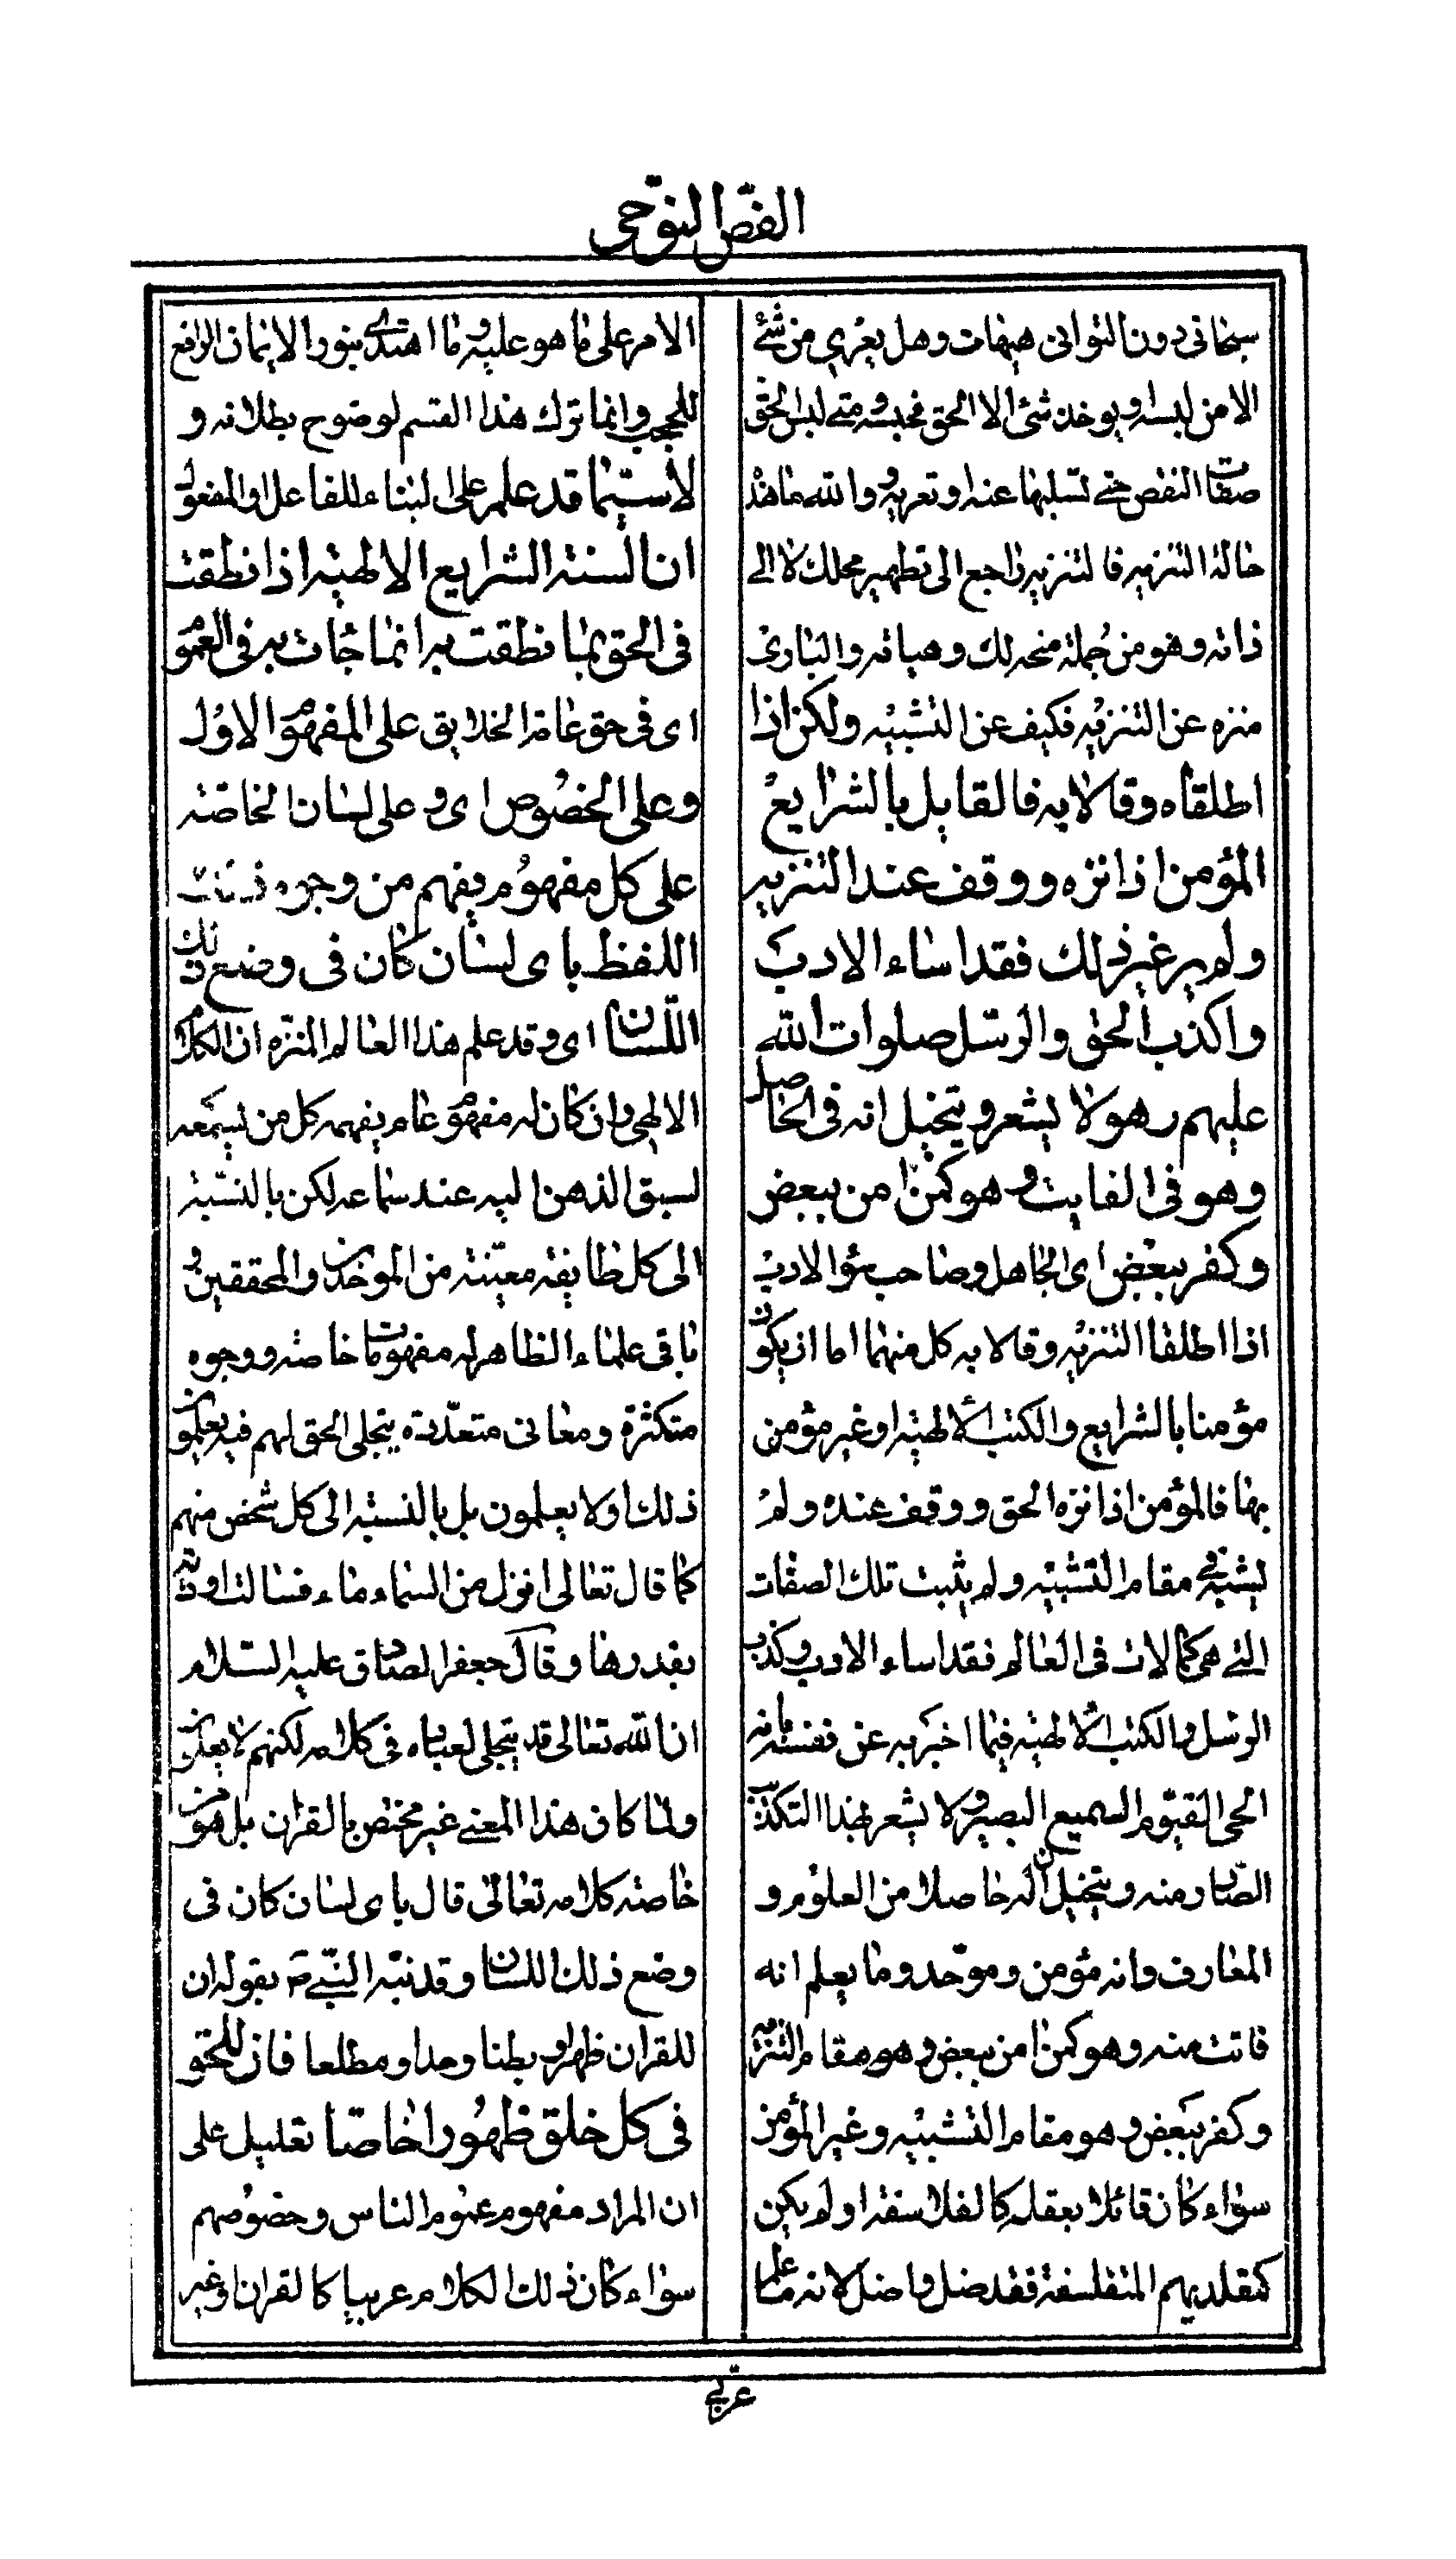 الفصّ النوحى
سبحانى دون التوانى هيهات وهل يعرى من شئ
الا من لبسه او يوخذ شئ الا الحق فحبسه ومتى لبس الحق
صفات النقص حتى تسلبها عنه او تعريه والله ما هذه
حالة التنزيه فالتنزيه راجع الى تطهير محلك لا الى
ذاته وهو من جملة منحه لك وهباته والبارى
منزه عن التنزيه فكيف عن التشبيه ولكن اذا
اطلقاه وقالا به فالقايل بالشرايع
المؤمن اذا نزه ووقف عند التنزيه
ولم ير غير ذلك فقد اساء الادب
واكذب الحق والرسل صلوات الله
عليهم وهو لا يشعر ويتخيل انه فى الحاصل
وهو فى الفايت وهو كمن امن ببعض
وكفر ببعض اى الجاهل وصاحب سؤ الادب
اذا اطلقا التنزيه وقالا به كل منهما اما ان يكون
مؤمنا بالشرايع والكتب الالهية او غير مؤمن
بها فالمؤمن اذا نزه الحق ووقف عنده ولم
يشبه فى مقام التشبيه ولم يثبت تلك الصفات
التى هى كمالات فى العالم فقد اساء الادب وكذب
الرسل والكتب الالهية فيما اخبر به عن نفسه بانه
الحى القيوم السميع البصير ولا يشعر بهذا التكذيب
الصادر منه ويتخيل ان له حاصلا من العلوم و
المعارف وانه مؤمن وموحد وما يعلم انه
فاتت منه وهو كمن امن ببعض وهو مقام التنزيه
وكفر ببعض وهو مقام التشبيه وغير المؤمن
سواء كان قائلا بعقله كالفلاسفة او لم يكن
كمقلديهم المتفلسفة فقد ضل واضل لانه ما علم
الامر على ما هو عليه وما اهتدى بنور الايمان الرافع
للحجب وانما ترك هذا القسم لوضوح بطلانه و
لا سيّما قد علم على البناء للفاعل او المفعول
ان السنة الشرايع الالهية اذا نطقت
فى الحق بما نطقت به انما جاءت به فى العموم
اى فى حق عامة الخلايق على المفهوم الاول
وعلى الخصوص اى وعلى لسان الخاصة
على كل مفهوم يفهم من وجوه ذلك
اللفظ باى لسان كان فى وضع ذلك
اللسان اى وقد علم هذا العالم المنزه ان الكلام
الالهى وان كان له مفهوم عام يفهمه كل من يسمعه
لسبق الذهن اليه عند سماعه لكن بالنسبة
الى كل طايفة معينة من الموحدين والمحققين و
باقى علماء الظاهر له مفهومات خاصة ووجوه
متكثرة ومعانى متعددة يتجلى الحق لهم فيه يعلمون
ذلك او لا يعلمون بل بالنسبة الى كل شخص منهم
كما قال تعالى انزل من السماء ماء فسالت اودية
بقدرها وقال جعفر الصادق عليه السلام
ان الله تعالى قد يتجلى لعباده فى كلامه لكنهم لا يعلمون
ولما كان هذا المعنى غير مختص بالقران بل هو من
خاصة كلامه تعالى قال باى لسان كان فى
وضع ذلك اللسان وقد نبّه النبى ص بقوله ان
للقران ظهرا وبطنا وحدا ومطلعا فان للحق
فى كل خلق ظهورا خاصا تعليل على
ان المراد مفهوم عموم الناس وخصوصهم
سواء كان ذلك الكلام عربيا كالقران او غير
عربى